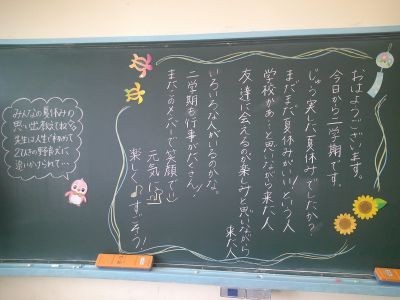 おはようございます。
今日から二学期です。
じゅう実した夏休みでしたか?
まだまだ夏休みがいい!という人
学校があ〜と思いながら来た人
友達に会えるのが楽しみと思いながら
来た人
いろいろな人がいるのかな。
二学期も行事がたくさん!
まだこのメンバーで笑顔で!!
元気に♪
楽しく♪すごそう!
みんなの夏休みの
思い出教えてね。
先生は人生で初めて
2ひきの野良犬に
追いかけられて…